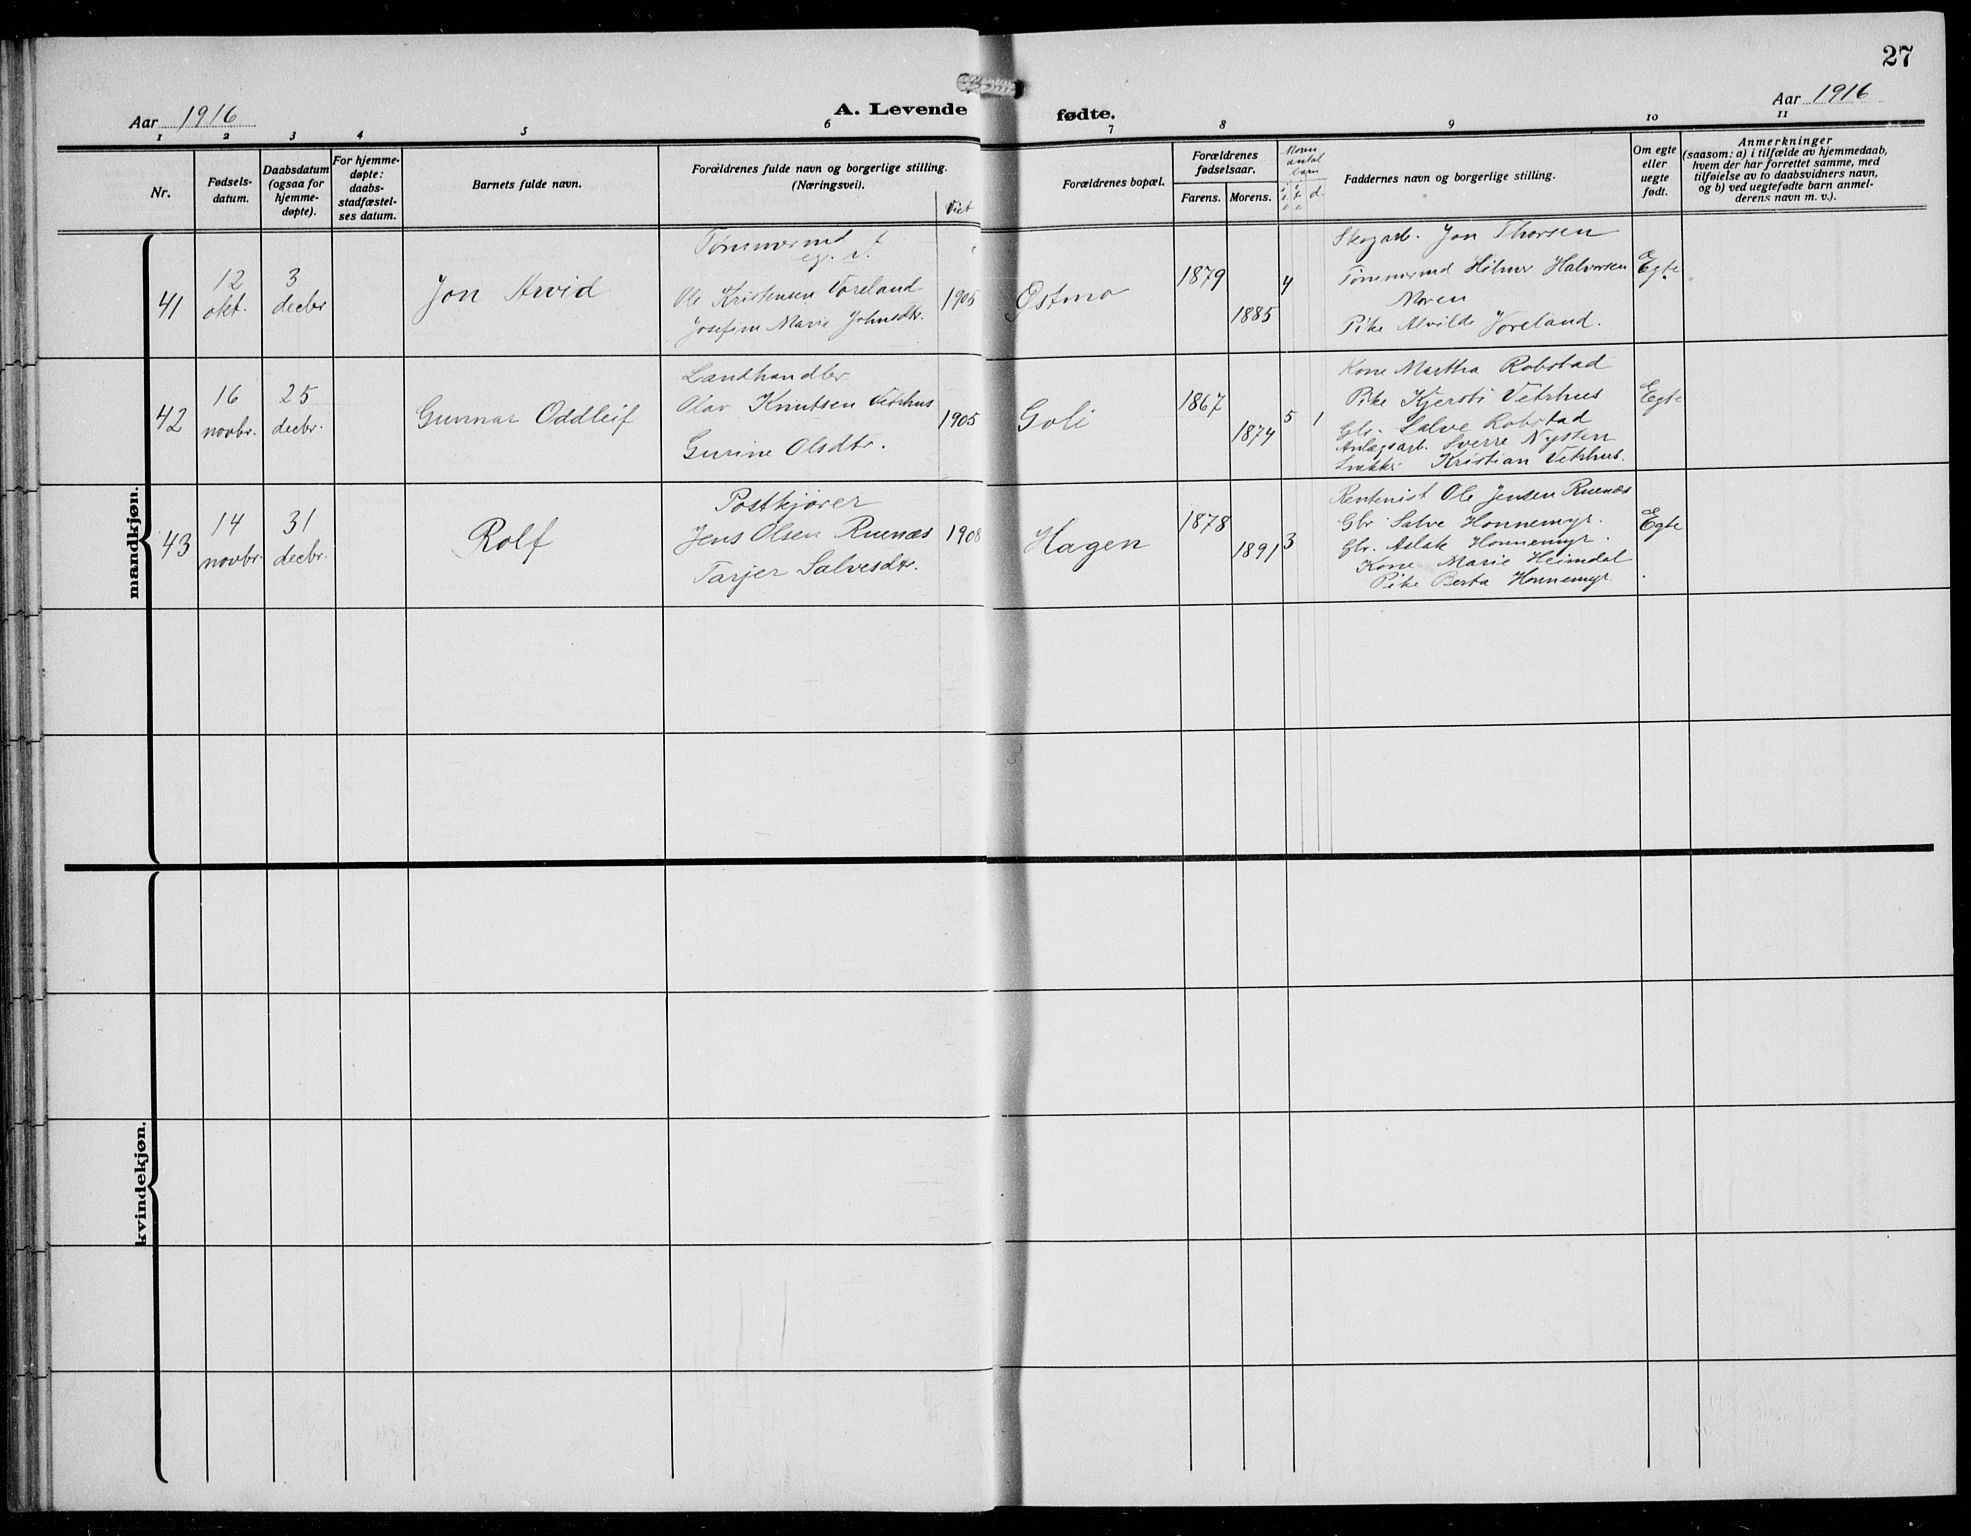 27
Aar 1916
A. Levende fødte.
Aar 1916
1 2 3 4 5 6 7 8 9 10 11
Nr.
Fødsels-
datum.
Daabsdatum
(ogsaa for
hjemme-
døpte).
For hjemme-
døpte:
daabs-
stadfæstel-
ses datum.
Barnets fulde navn.
Forældrenes fulde navn og borgerlige stilling.
(Næringsvei).
Viet
Forældrenes bopæl.
Forældrenes
fødselsaar.
Farens. Morens.
antal
barn
d.
Faddernes navn og borgerlige stilling.
Om egte
eller
uegte
født.
Anmerkninger
(saasom: a) i tilfælde av hjemmedaab,
hvem der har forrettet samme, med
tilføielse av to daabsvidners navn,
og b) ved uegtefødte barn anmel-
derens navn m. v.).
mandkjøn.
41
12
okt.
3
decbr
Jon Arvid
Tømmermd
Ole Kristensen Voreland
Josefine Marie Johnsdtr.
1905
Østmo
1879
1885
4
Skogarb. Jon Thorsen
Tømmermd Hilmer Halvorsen
Moren
Pike Alvilde Voreland.
Egte
42
16
novbr.
25
decbr.
Gunnar Oddleif
Landhandler
Olav Knutsen Vetrhus
Gurine Olsdtr.
1905
Goli
1867
1874
5 1
Kone Martha Robstad
Pike Kjersti Vetrhus
Gbr. Salve Robstad
Anlægsarb. Sverre Nysten
Kristian Vetrhus.
Egte
43
14
novbr.
31
decbr.
Rolf
Postkjører
Jens Olsen Ruenæs
Tarjer Salvesdtr.
1908
Hagen
1878
1891
3
Rentenist Ole Jensen Ruenæs
Gbr. Salve Honnemyr.
Gbr. Aslak Honnemyr.
Kone Marie Heimdal
Pike Berta Honnemyr.
Egte
kvindekjøn.